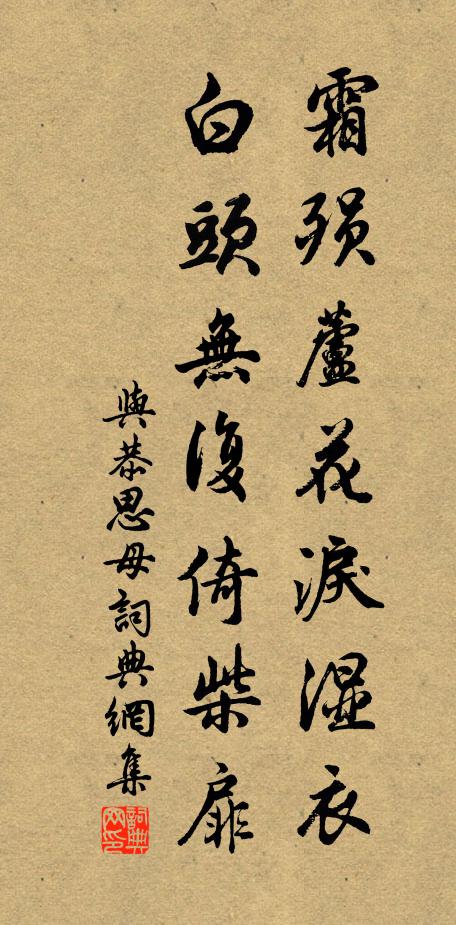 霜殞蘆花淚湿衣
白頭無復倚柴扉
與恭思母詞典網集
詞典網印